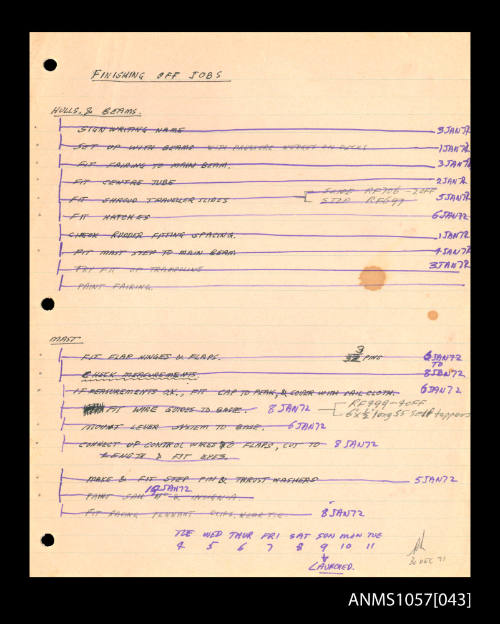 FINISHING OFF JOBS
HULLS, & BEAMS.
SIGN WRITING NAME 3 JAN 72
SET UP WITH BEAMS WITH ON DECKS 1 JAN 72
FIT FAIRING TO MAIN BEAM. 3 JAN 72
FIT CENTRE TUBE 2 JAN 72
FIT SHROUD TRAVELLER SLIDES SLIDE 2 OFF 5 JAN 72
FIT HATCHES 6 JAN 72
CHECK RUDDER FITTING SPACING. 1 JAN 72
FIT MAST STEP TO MAIN BEAM 4 JAN 72
TRY FIT OF TRAMPOLINE 3 JAN 72
PAINT FAIRING.
MAST.
FIT FLAP HINGES & FLAPS. PINS 6 JAN 72
TO
CHECK MEASUREMENTS. 8 JAN 72
IF MEASUREMENTS FIT CAP TO PEAK, & COVER WITH SAIL CLOTH. 6 JAN 72
FIT WIRE TO BASE. 8 JAN 72 RF999-4 OFF
LONG SS SELF TAPPERS
MOUNT LEVER SYSTEM TO BASE. 6 JAN 72
CONNECT UP CONTROL WIRES TO FLAPS, CUT TO 8 JAN 72
LENGTH & FIT
MAKE & FIT STEP PIN & THRUST WASHERS 5 JAN 72
JAN 72
PAINT INSIGNIA
FIT PENNANT 8 JAN 72
TUE WED THUR FRI SAT SUN MON TUE
4 5 6 7 8 9 10 11
LAUNCHED.
30 DEC 71
ANMS1057[043]